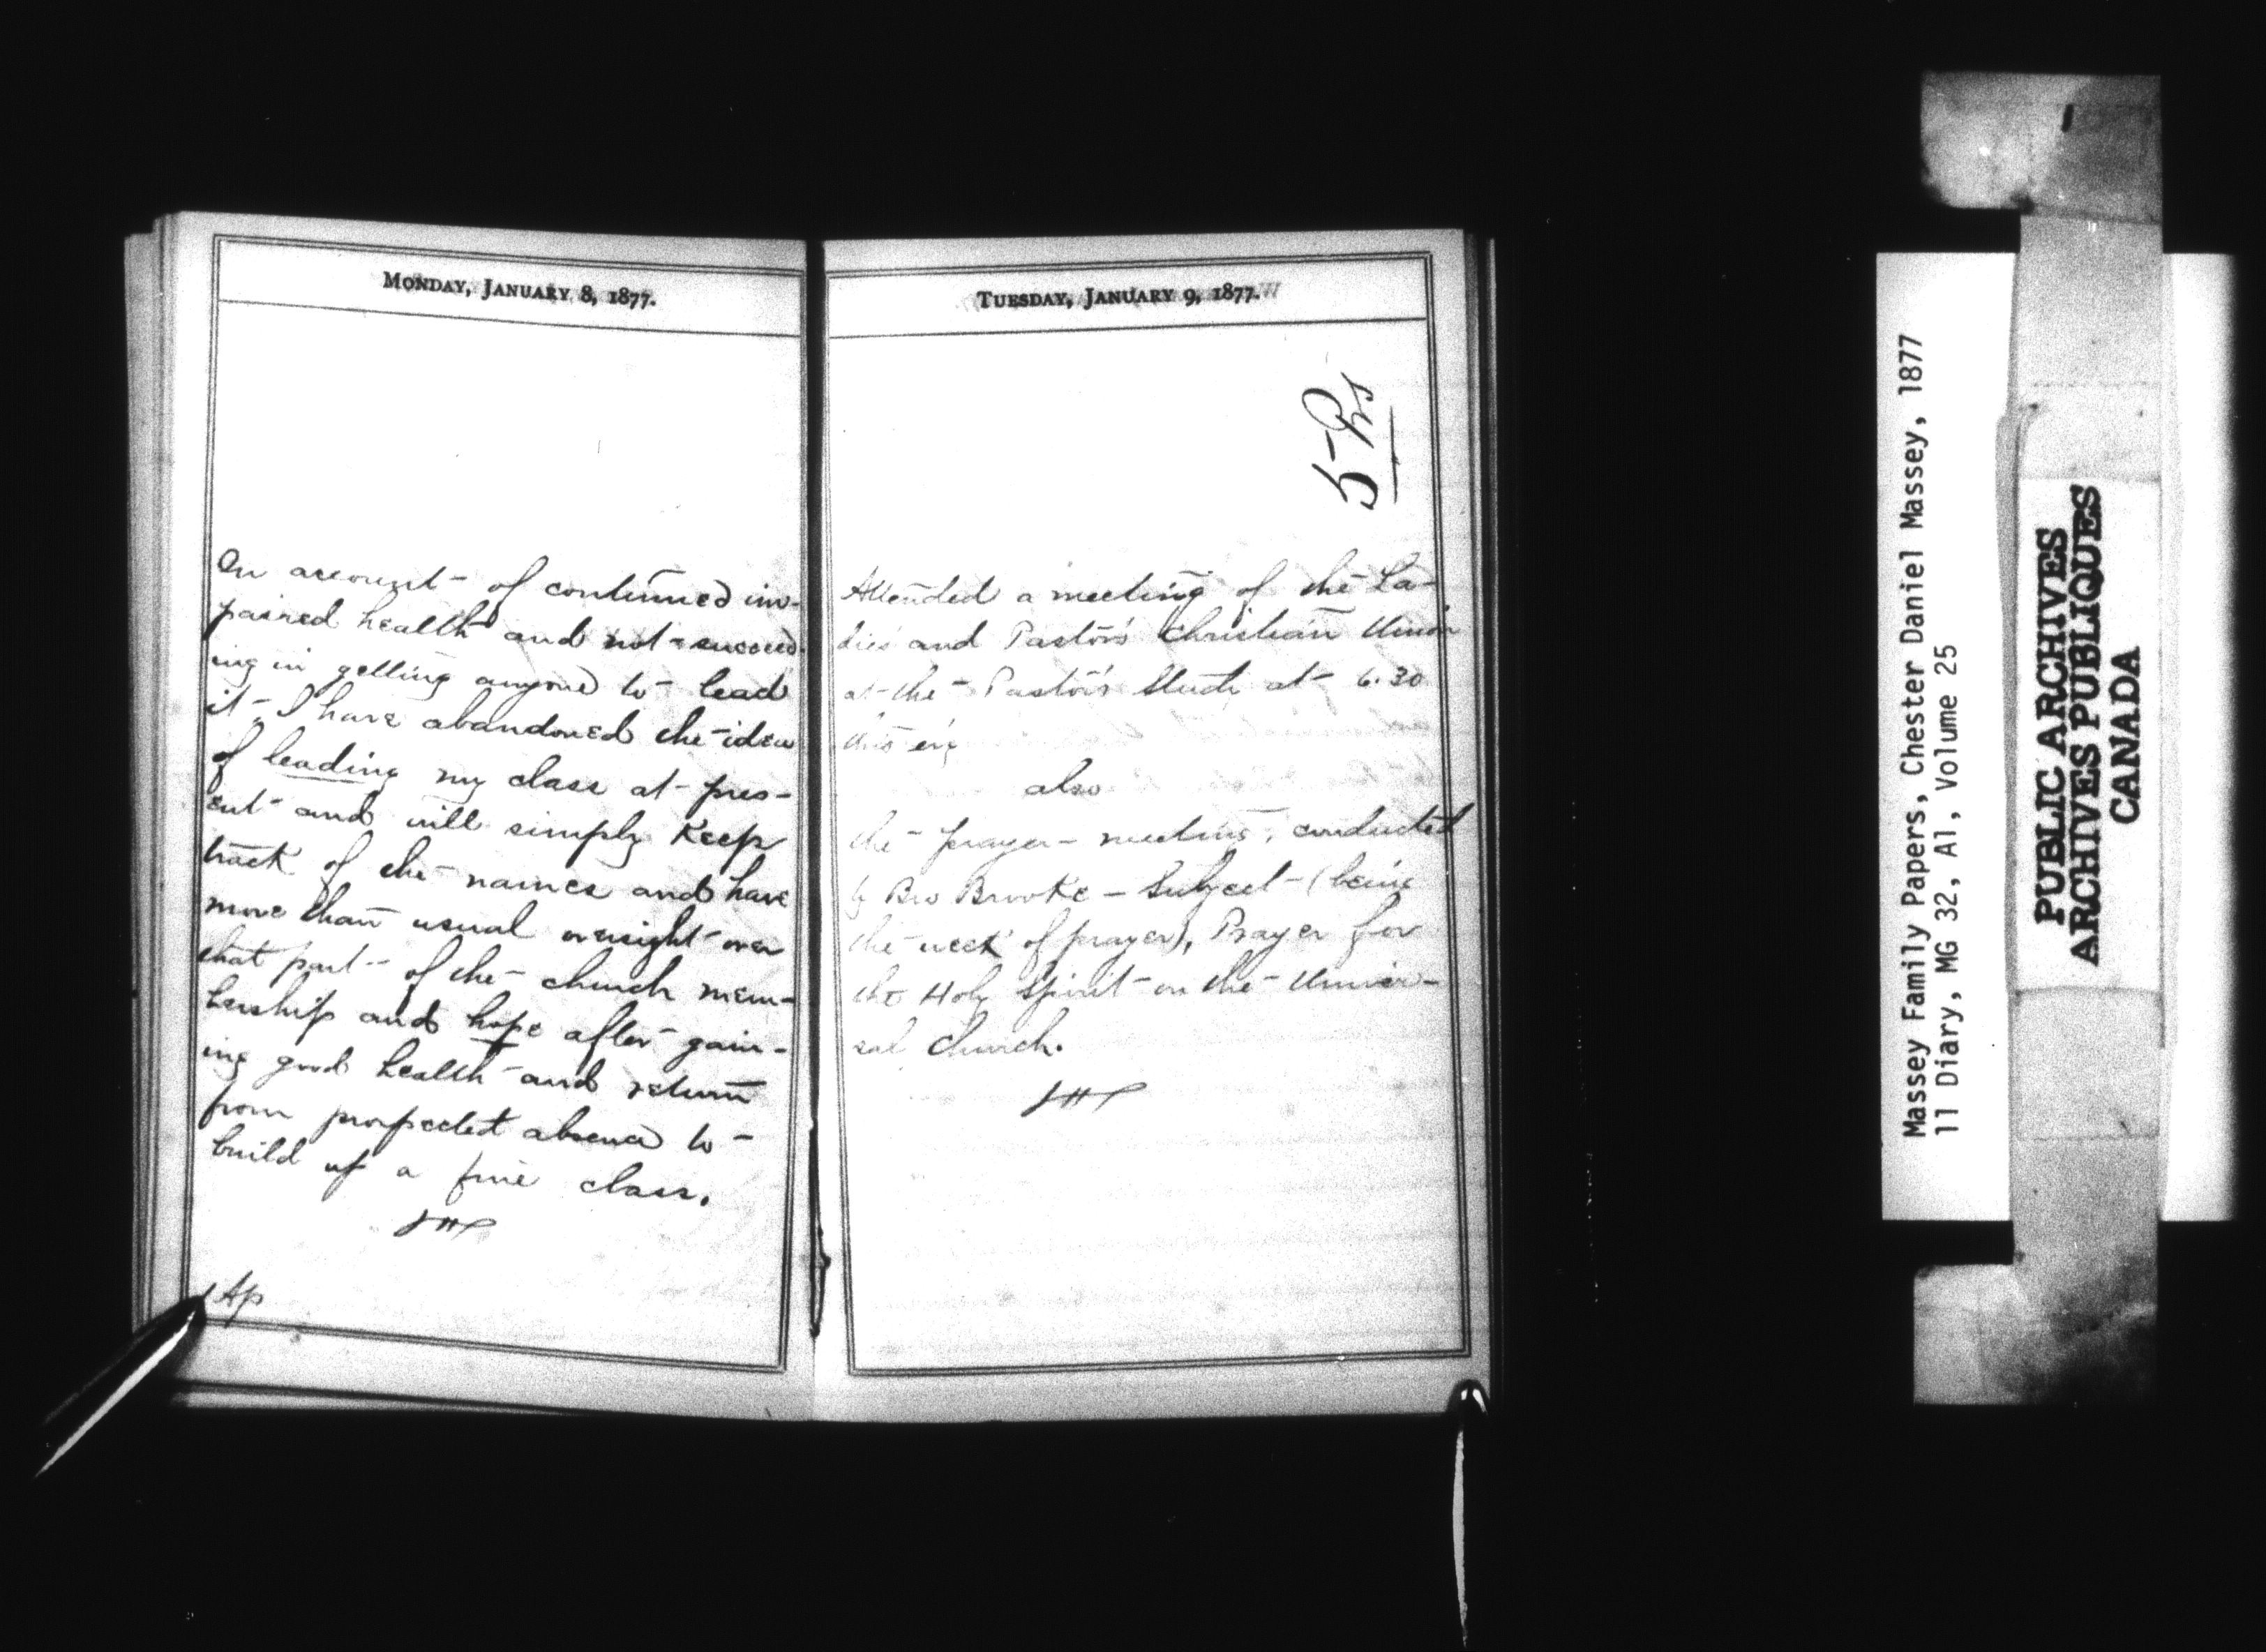 MONDAY, JANUARY 8, 1877.
On account of continued im-
paired health and not succeed-
ing in getting anyone to lead
it, I have abandoned the idea
of leading my class at pres-
ent and will simply keep
track of the names and have
more than usual oversight over
that part of the church mem-
bership and hope after gain-
ing good health and return
from prospected absence to
build up a fine class.
TUESDAY, JANUARY 9, 1877.
Attended a meeting of the La-
dies and Pastor's Christian Union
at the Pastor's Study at 6.30
this ev'g
also
the prayer-meeting, conducted
by Bro Brooke - Subject - (being
the week of prayer), Prayer for
the Holy Spirit on the Univer-
sal Church.
Massey Family Papers, Chester Daniel Massey, 1877
11 Diary, MG 32, A1, Volume 25
PUBLIC ARCHIVES
ARCHIVES PUBLIQUES
CANADA